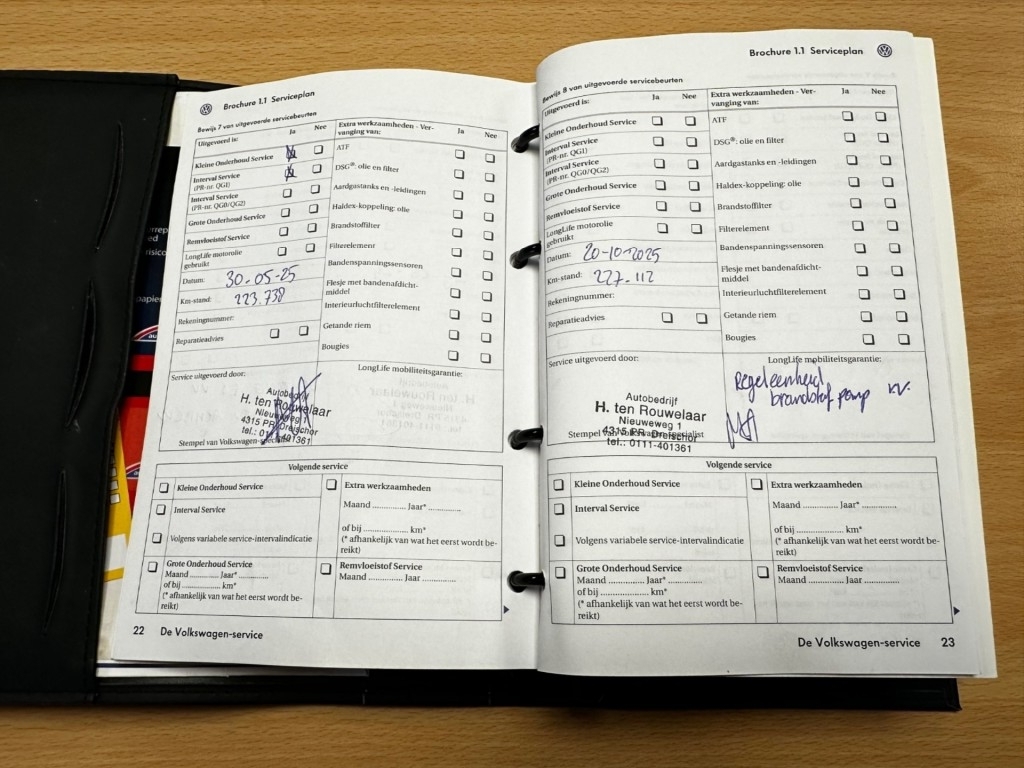 Brochure 1.1 Serviceplan
Bewijs 7 van uitgevoerde servicebeurten
Uitgevoerd is: Ja Nee
Kleine Onderhoud Service
Interval Service
(PR-nr. QG1)
Interval Service
(PR-nr. QG0/QG2)
Grote Onderhoud Service
Remvloeistof Service
LongLife motorolie
gebruikt
Datum: 30-05-25
Km-stand: 223.738
Rekeningnummer:
Reparatieadvies
Extra werkzaamheden - Ver-
vanging van: Ja Nee
ATF
DSG®: olie en filter
Aardgastanks en -leidingen
Haldex-koppeling: olie
Brandstoffilter
Filterelement
Bandenspanningssensoren
Flesje met bandenafdicht-
middel
Interieurluchtfilterelement
Getande riem
Bougies
Service uitgevoerd door:
LongLife mobiliteitsgarantie:
Autobedrijf
H. ten Rouwelaar
Nieuweweg 1
4315 PR Dreischor
tel.: 0111-401361
Stempel van Volkswagen-specialist
Volgende service
Kleine Onderhoud Service
Interval Service
Volgens variabele service-intervalindicatie
Grote Onderhoud Service
Maand ............ Jaar* ............
of bij ................... km*
(* afhankelijk van wat het eerst wordt be-
reikt)
Extra werkzaamheden
Maand ............. Jaar* .............
of bij ................... km*
(* afhankelijk van wat het eerst wordt be-
reikt)
Remvloeistof Service
Maand ............. Jaar .............
22 De Volkswagen-service
Brochure 1.1 Serviceplan
Bewijs 8 van uitgevoerde servicebeurten
Uitgevoerd is: Ja Nee
Kleine Onderhoud Service
Interval Service
(PR-nr. QG1)
Interval Service
(PR-nr. QG0/QG2)
Grote Onderhoud Service
Remvloeistof Service
LongLife motorolie
gebruikt
Datum: 20-10-2025
Km-stand: 227.112
Rekeningnummer:
Reparatieadvies
Extra werkzaamheden - Ver-
vanging van: Ja Nee
ATF
DSG®: olie en filter
Aardgastanks en -leidingen
Haldex-koppeling: olie
Brandstoffilter
Filterelement
Bandenspanningssensoren
Flesje met bandenafdicht-
middel
Interieurluchtfilterelement
Getande riem
Bougies
Service uitgevoerd door:
LongLife mobiliteitsgarantie:
Regeleenheid
brandstof pomp
Autobedrijf
H. ten Rouwelaar
Nieuweweg 1
4315 PR Dreischor
Stempel van Volkswagen-specialist
tel.: 0111-401361
Volgende service
Kleine Onderhoud Service
Interval Service
Volgens variabele service-intervalindicatie
Grote Onderhoud Service
Maand ............. Jaar* .............
of bij ................... km*
(* afhankelijk van wat het eerst wordt be-
reikt)
Extra werkzaamheden
Maand ............. Jaar* .............
of bij ................... km*
(* afhankelijk van wat het eerst wordt be-
reikt)
Remvloeistof Service
Maand ............. Jaar .............
De Volkswagen-service 23